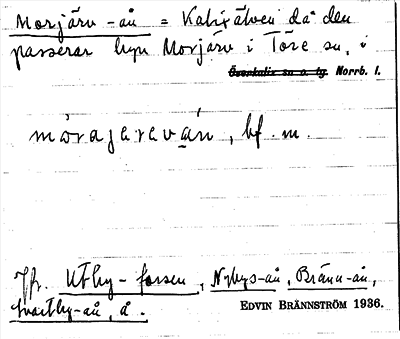 Morjärv-ån = Kalixälven då den
passerar byn Morjärv i Töre sn, i
Överkalix sn o. tg. Norrb. l.
mòrajərəván, bf. m.
Jfr. Utby-forsen, Nybys-ån, Bränn-ån,
Svartby-ån, å.
EDVIN BRÄNNSTRÖM 1936.